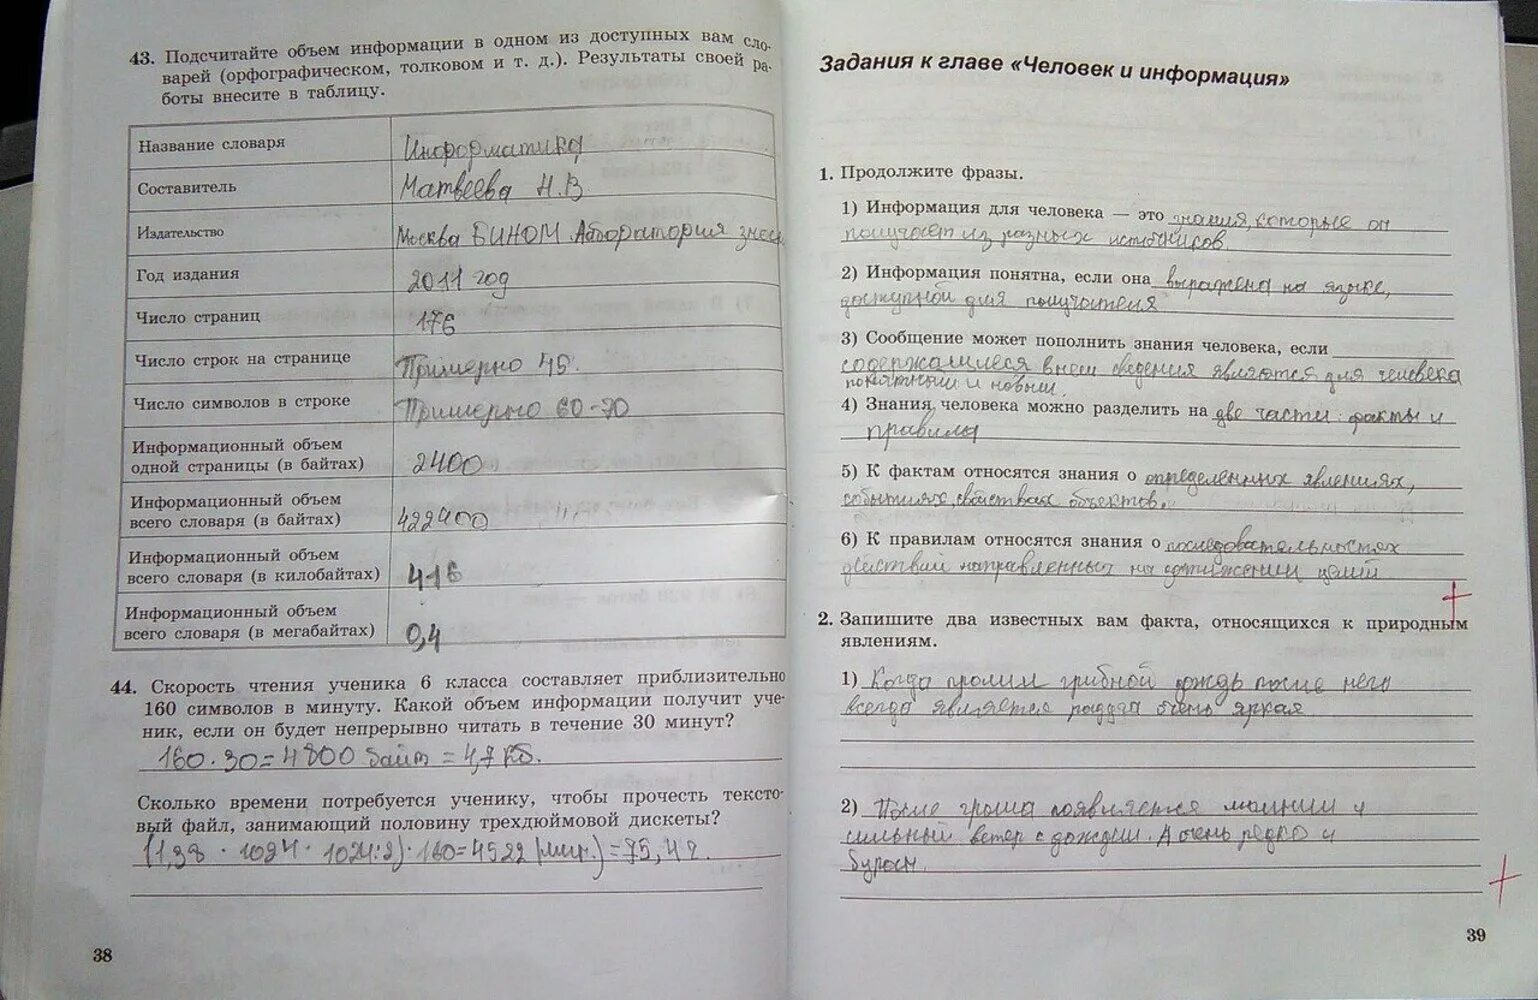 43. Подсчитайте объем информации в одном из доступных вам сло-
варей (орфографическом, толковом и т. д.). Результаты своей ра-
боты внесите в таблицу.
Название словаря Информатика
Составитель Матвеева Н.В
Издательство Москва БИНОМ Лаборатория знан
Год издания 2011 год
Число страниц 176
Число строк на странице Примерно 45.
Число символов в строке Примерно 60-70
Информационный объем
одной страницы (в байтах) 2400
Информационный объем
всего словаря (в байтах) 422400
Информационный объем
всего словаря (в килобайтах) 416
Информационный объем
всего словаря (в мегабайтах) 0,4
44. Скорость чтения ученика 6 класса составляет приблизительно
160 символов в минуту. Какой объем информации получит уче-
ник, если он будет непрерывно читать в течение 30 минут?
160·30=4800 байт = 4,7 Кб.
Сколько времени потребуется ученику, чтобы прочесть тексто-
вый файл, занимающий половину трехдюймовой дискеты?
(1,38 · 1024 · 1024:2)·160=4522 (мин.)=75,4ч.
38
Задания к главе «Человек и информация»
1. Продолжите фразы.
1) Информация для человека — это знания, которые он
получает из разных источников
2) Информация понятна, если она выражена на языке,
доступной для получателя
3) Сообщение может пополнить знания человека, если
содержащиеся в нем сведения являются для человека
понятными и новыми.
4) Знания человека можно разделить на две части: факты и
правила
5) К фактам относятся знания о определенных явлениях,
событиях, свойствах объектов.
6) К правилам относятся знания о последовательностях
действий направленных на достижении целий
2. Запишите два известных вам факта, относящихся к природным
явлениям.
1) Когда пролил грибной дождь после него
всегда является радуга очень яркая
2) После грома появляется молнии и
сильный ветер с дождем. А очень редко и
39